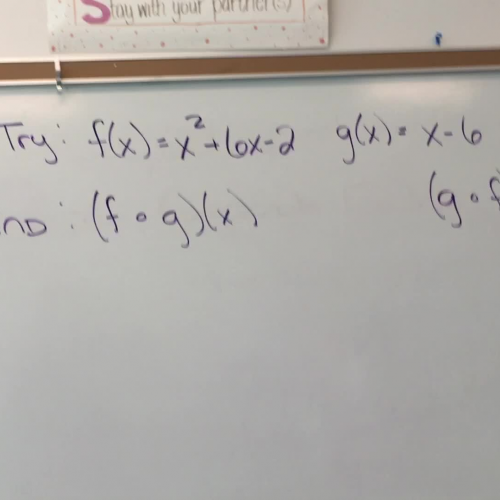 Stay with your partner(s)
Try: f(x) = x² + 6x - 2 g(x) = x - 6
ND: (f ∘ g)(x) (g ∘ f